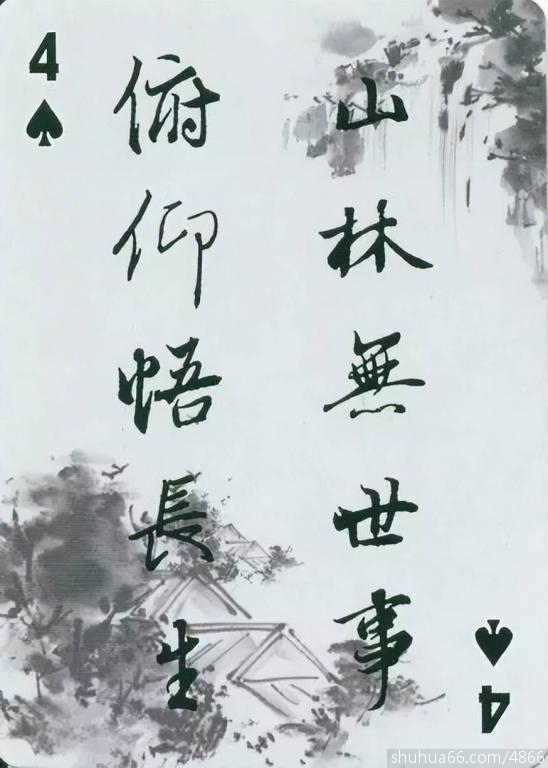 4
山林無世事
俯仰悟長生
4
shuhua66.com/4866